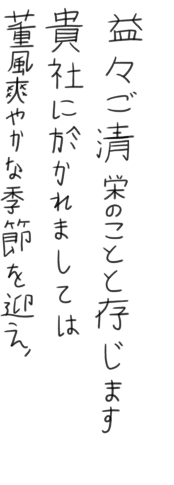 益々ご清栄のことと存じます
貴社に於かれましては
薫風爽やかな季節を迎え、